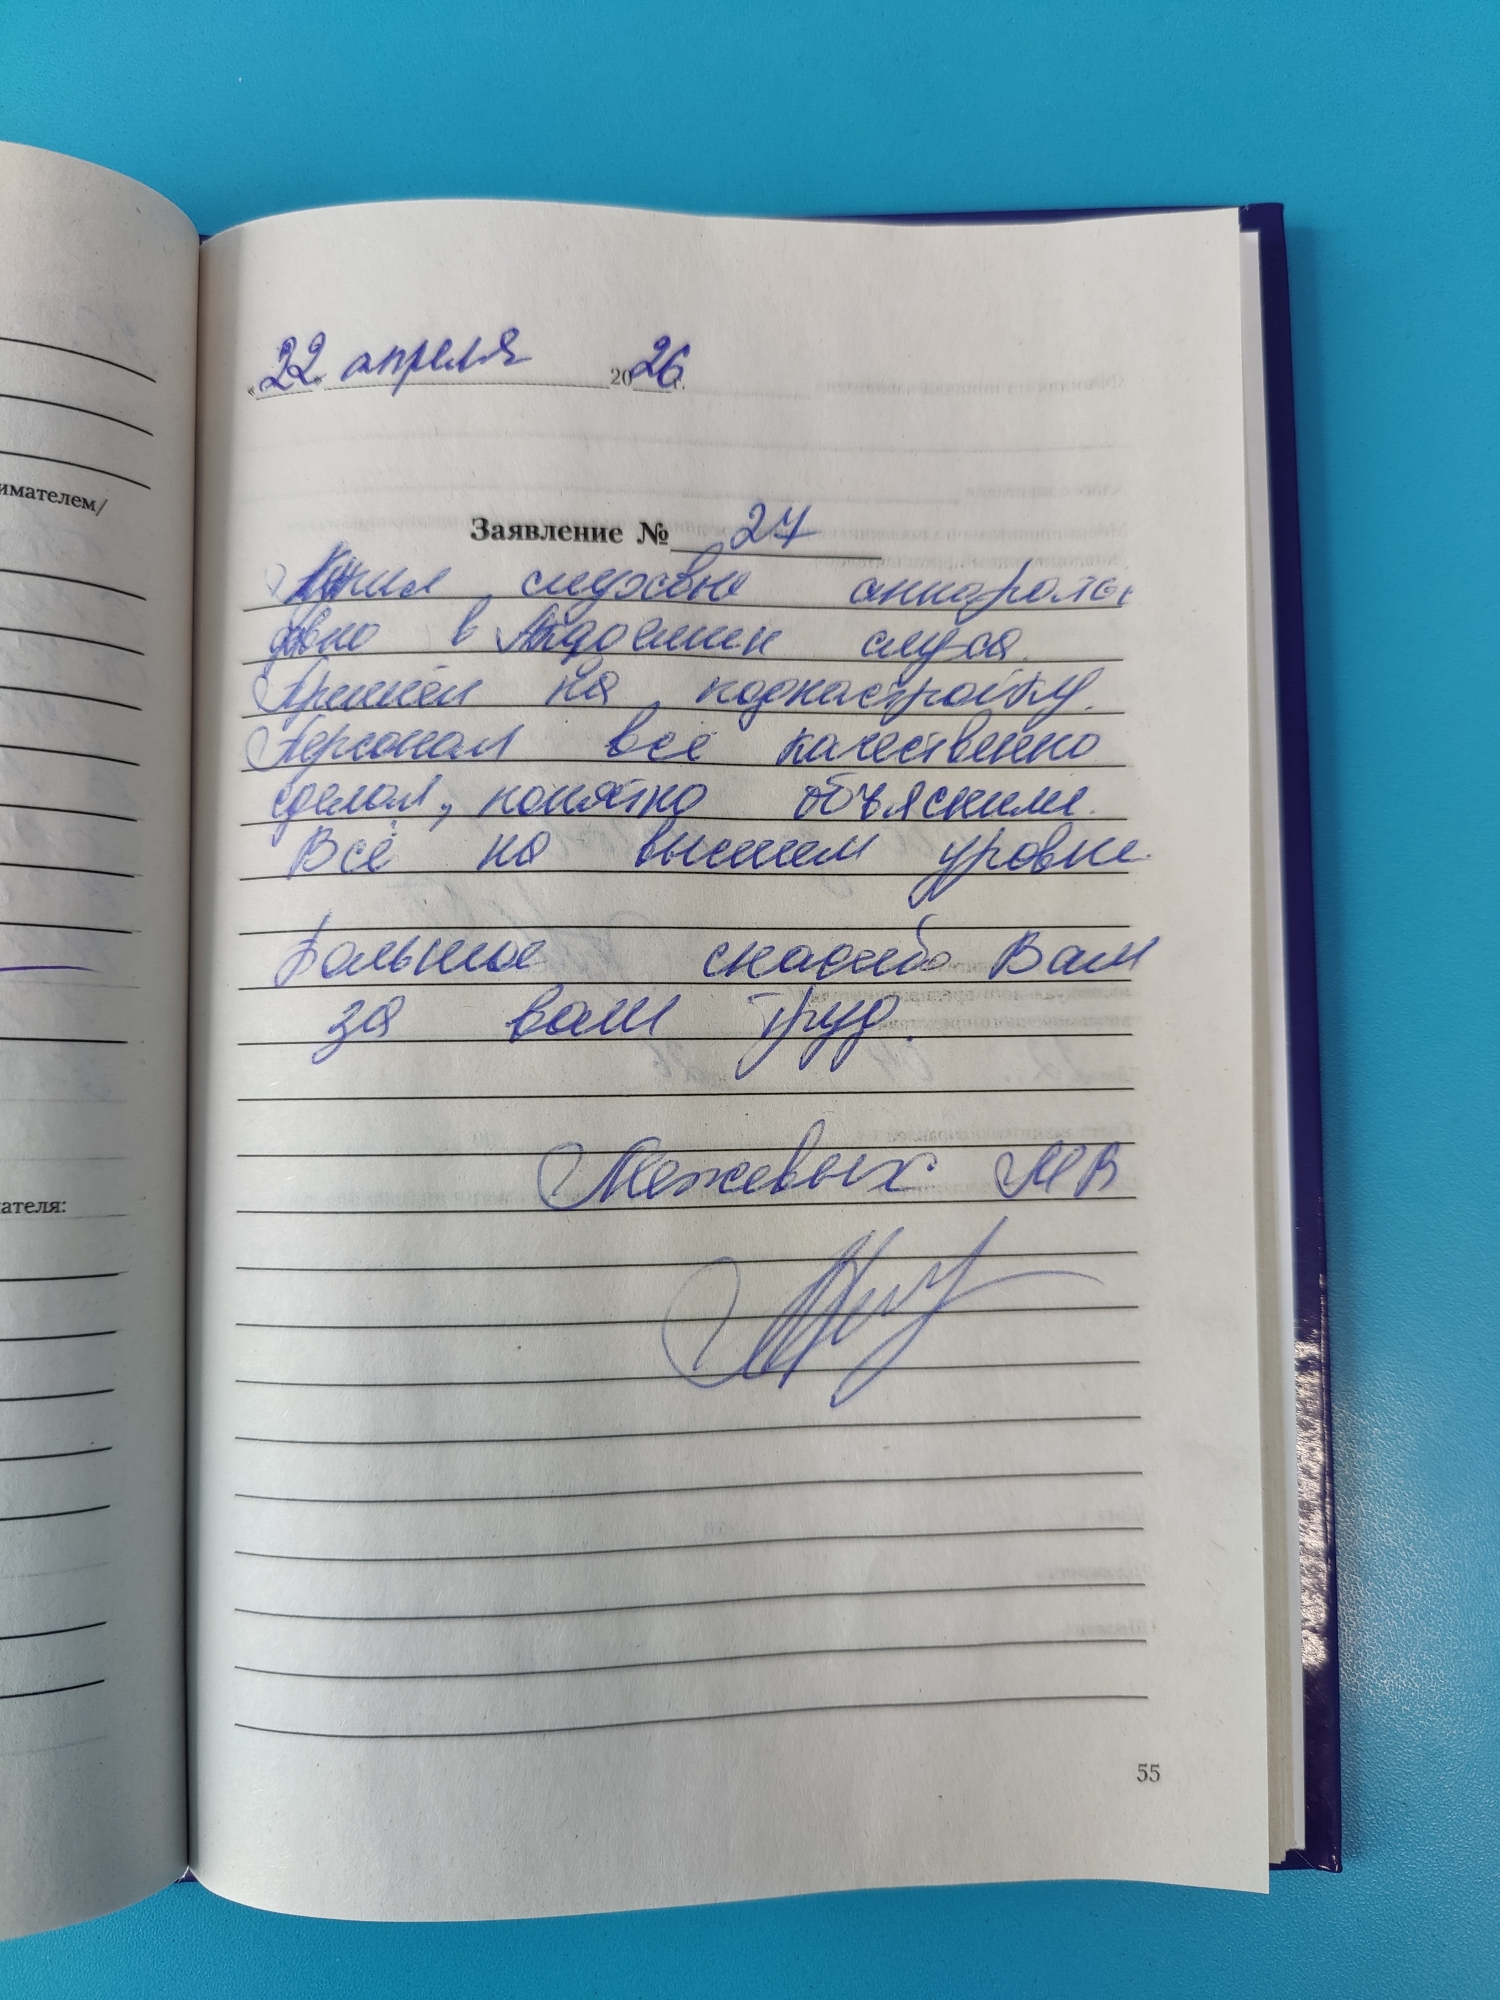 имателем/
ателя:
«22» апреля 2026 г.
Заявление № 27
Купил слуховые аппараты
давно в Академии слуха.
Пришёл на поднастройку.
Персонал всё качественно
сделал, понятно объяснили.
Всё на высшем уровне.
Большое спасибо Вам
за ваш труд.
Межевых М В
55